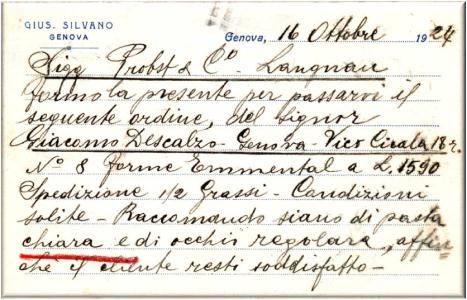 GIUS. SILVANO
GENOVA
Genova, 16 Ottobre 1924
Sigg Probst & Co. Langnau
Formo la presente per passarvi il
seguente ordine, del Signor
Giacomo Descalzo - Genova - Vico Cicala 18 r.
No 8 forme Emmental a L. 1590
Spedizione 1/2 Grassi - Condizioni
solite - Raccomando siano di pasta
chiara e di occhio regolare, affin-
che il cliente resti soddisfatto -